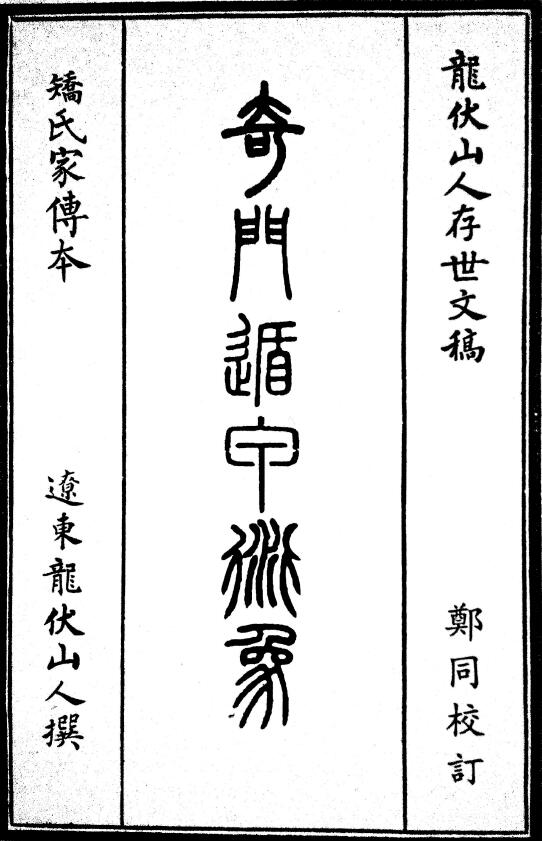 龍伏山人存世文稿
鄭同校訂
奇門遁甲衍象
矯氏家傳本
遼東龍伏山人撰